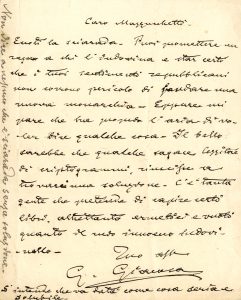 Caro Mazzucchetti
Eccoti la sciarada. Puoi promettere un
regno a chi l'indovina e star certo
che i tuoi sentimenti repubblicani
non corrono pericolo di fondare una
nuova monarchia. Eppure mi
pare che ha proprio l'aria di vo-
ler dire qualche cosa. Il bello
sarebbe che qualche sagace lettore
di criptogrammi, riuscisse a
trovarci una soluzione. C'è tanta
gente che pretende di capire certi
libri, altrettanto ermetici e vuoti
quanto il mio innocuo indovi-
nello.
Tuo aff
G. Giacosa
S'intende che va data come cosa seria e
solubile.
Non dire a nessuno che è sciarada senza soluzione.